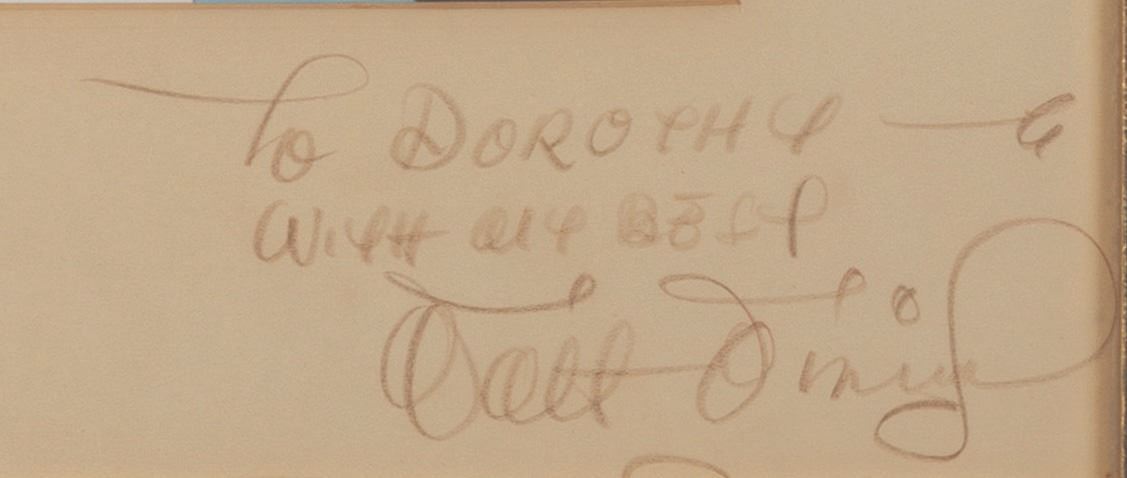 To DOROTHY —
WITH MY BEST
Walt Disney